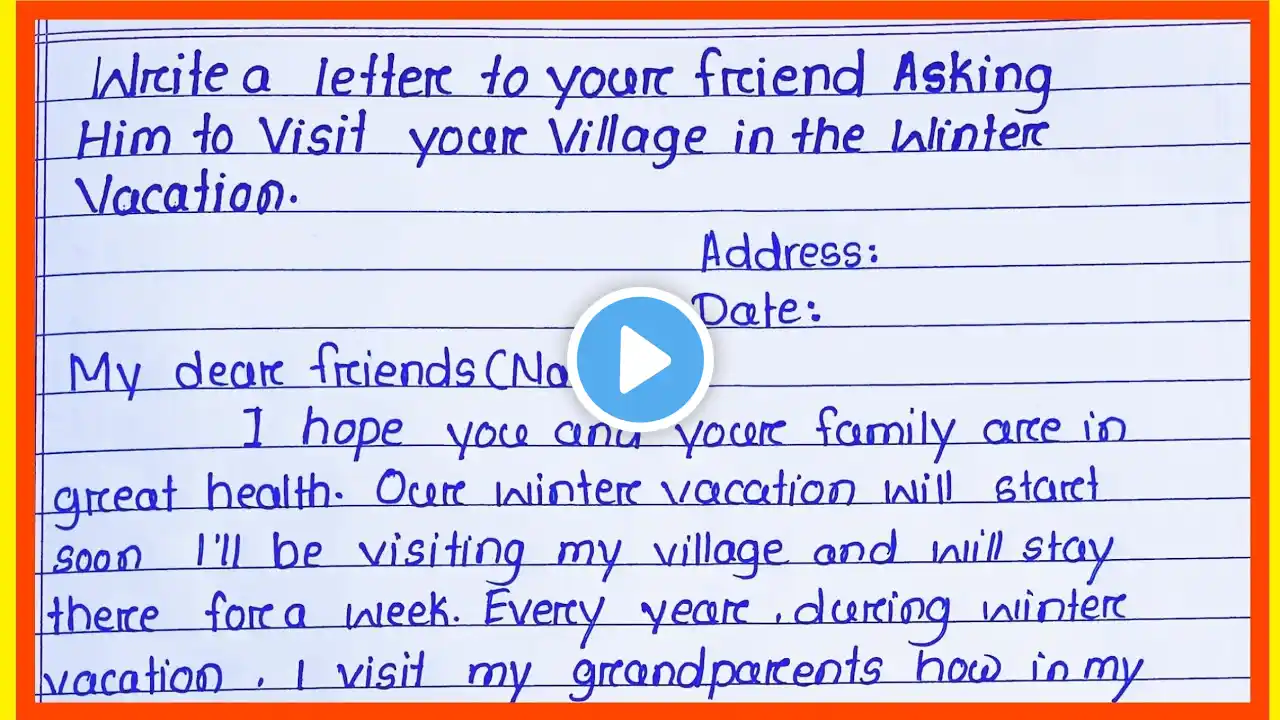 Write a letter to your friend Asking
Him to Visit your Village in the Winter
Vacation.
Address:
Date:
My dear friends (Na
I hope you and your family are in
great health. Our winter vacation will start
soon I'll be visiting my village and will stay
there for a week. Every year, during winter
vacation, I visit my grandparents how in my